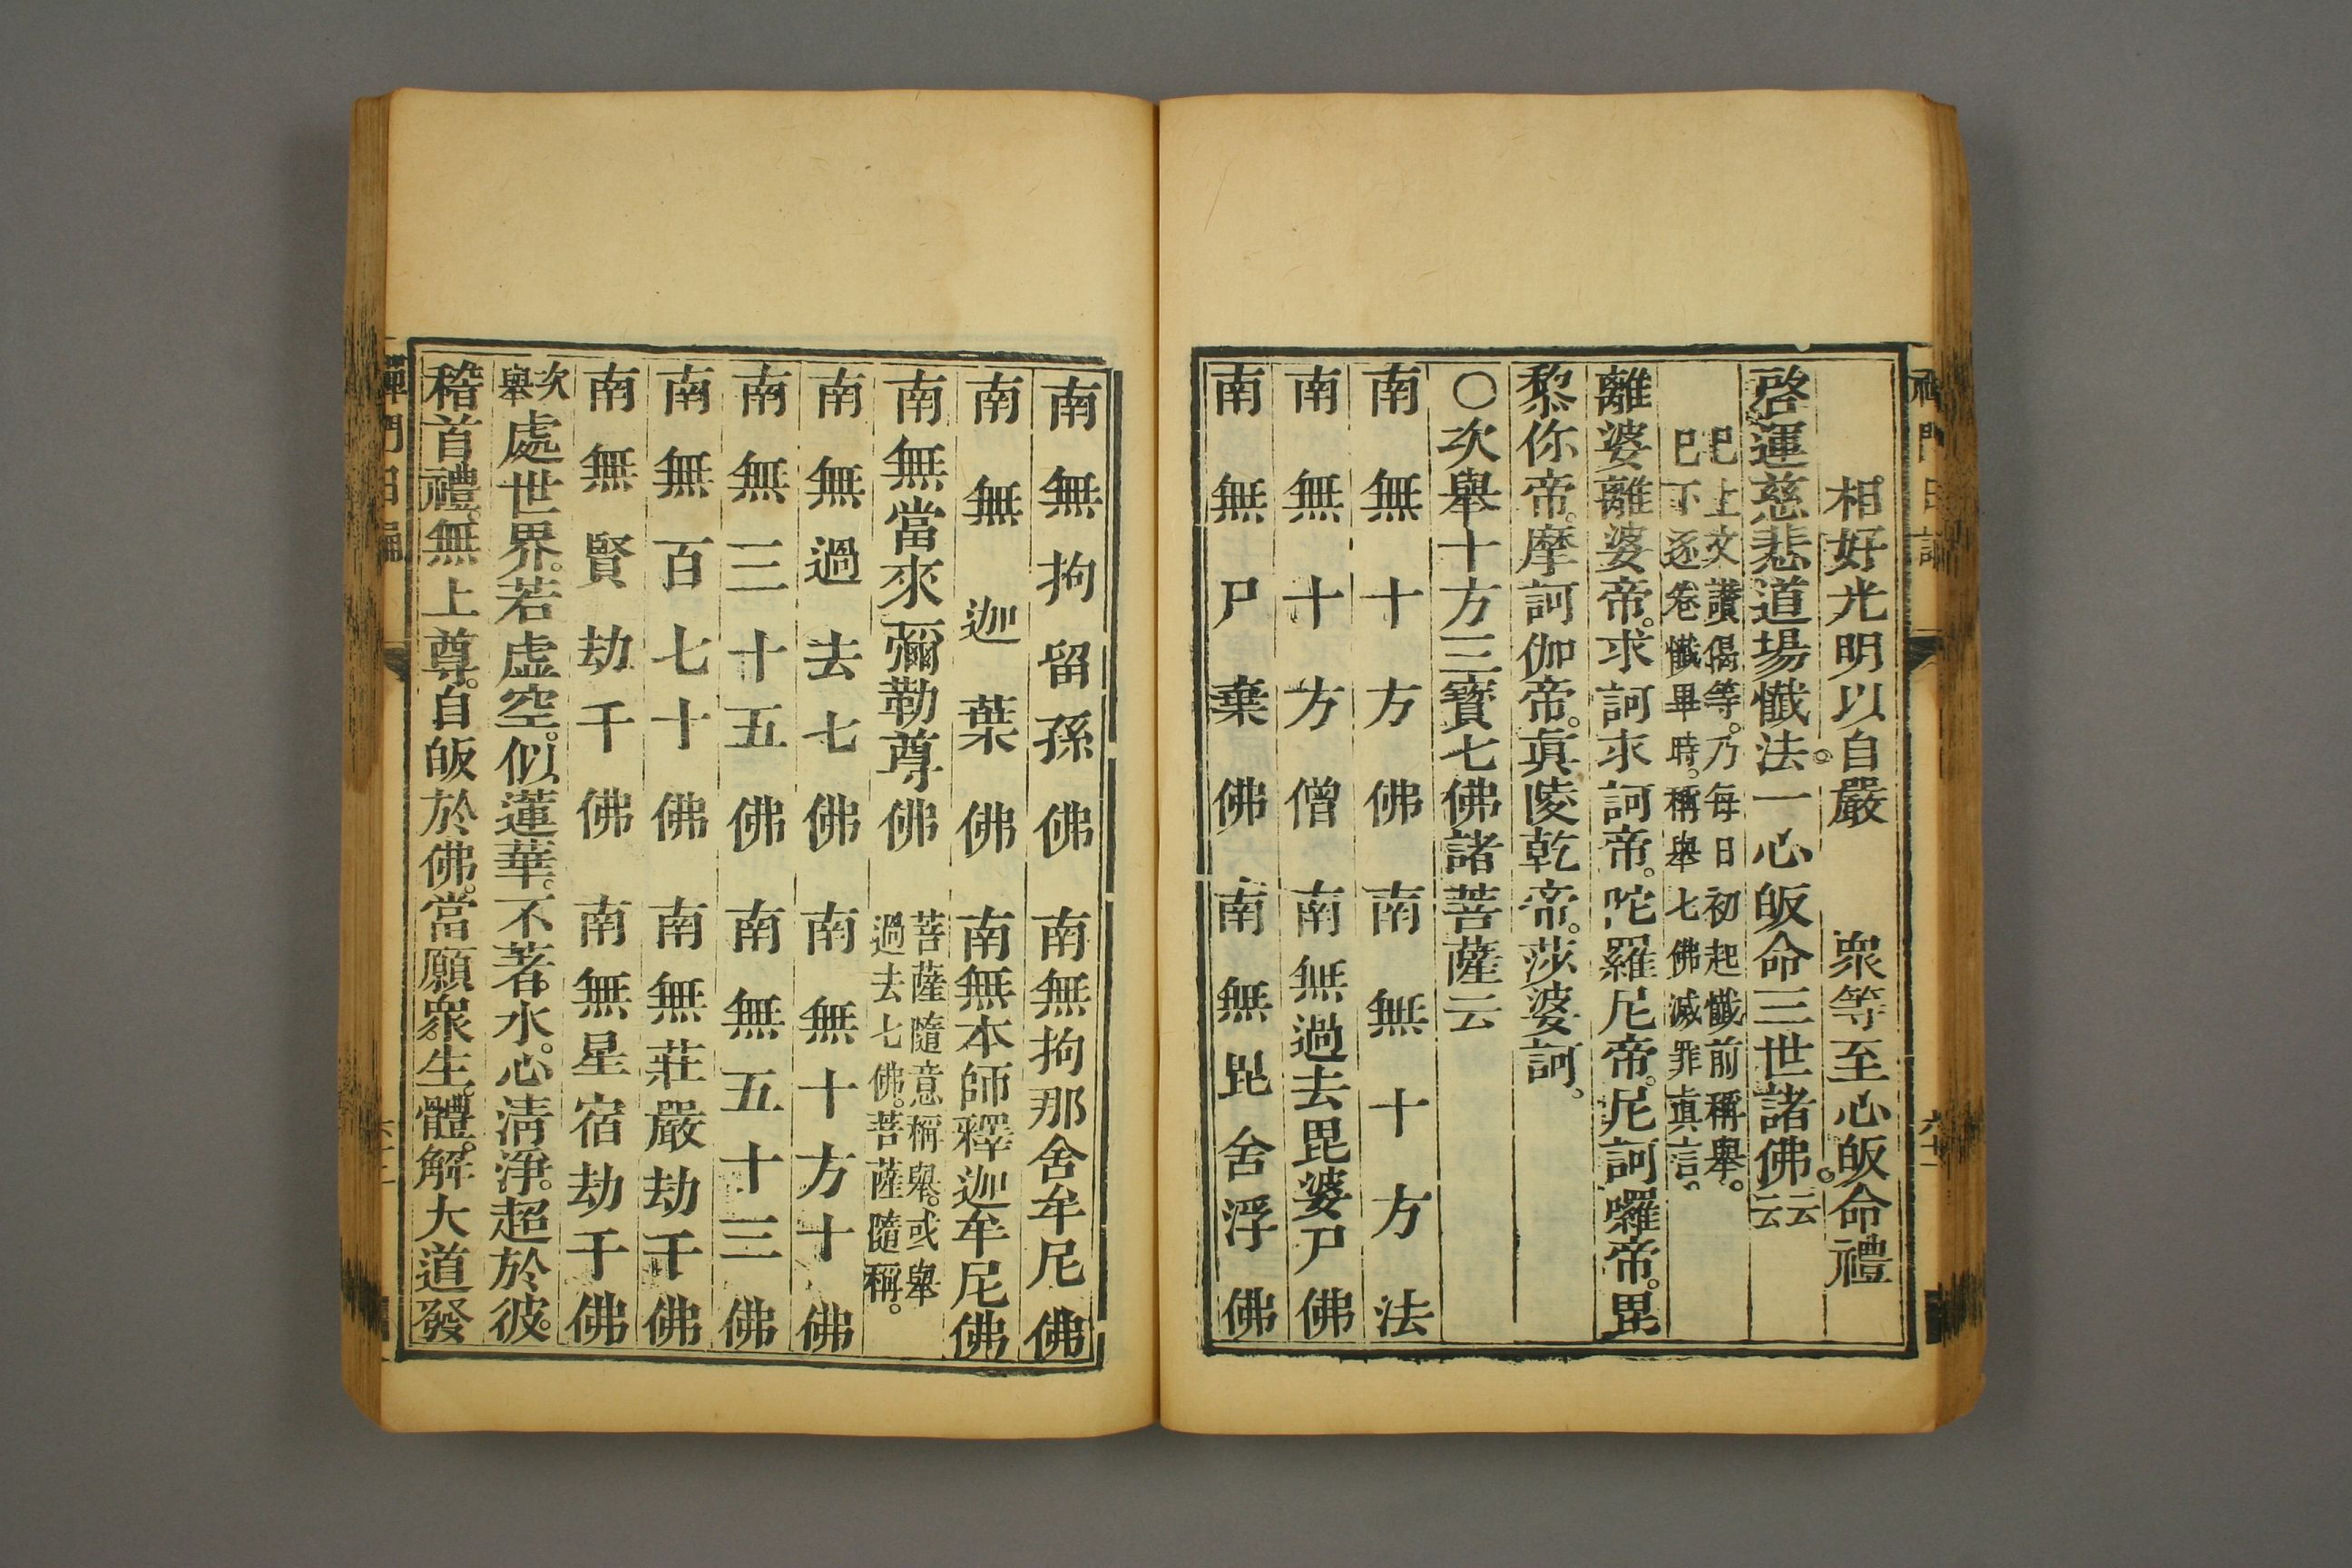 相好光明以自嚴　衆等至心皈命禮
啓運慈悲道場懺法。一心皈命三世諸佛。云云
已上文讚偈等。乃每日初起懺前稱舉。
已下逐卷懺畢時。稱舉七佛滅罪眞言。
離婆離婆帝。求訶求訶帝。陀羅尼帝。尼訶囉帝。毘
黎你帝。摩訶伽帝。眞陵乾帝。莎婆訶。
〇次舉十方三寶七佛諸菩薩云
南無十方佛　南無十方法
南無十方僧　南無過去毘婆尸佛
南無尸棄佛　南無毘舍浮佛
南無拘留孫佛　南無拘那舍牟尼佛
南無迦葉佛　南無本師釋迦牟尼佛
南無當來彌勒尊佛　菩薩隨意稱舉。或舉
過去七佛。菩薩隨稱。
南無過去七佛　南無十方十佛
南無三十五佛　南無五十三佛
南無百七十佛　南無莊嚴劫千佛
南無賢劫千佛　南無星宿劫千佛
次舉處世界。若虛空。似蓮華。不著。水。心清淨。超於彼。
稽首禮。無上尊。自皈於佛。當願衆。生。體。解大道發
禪門日誦